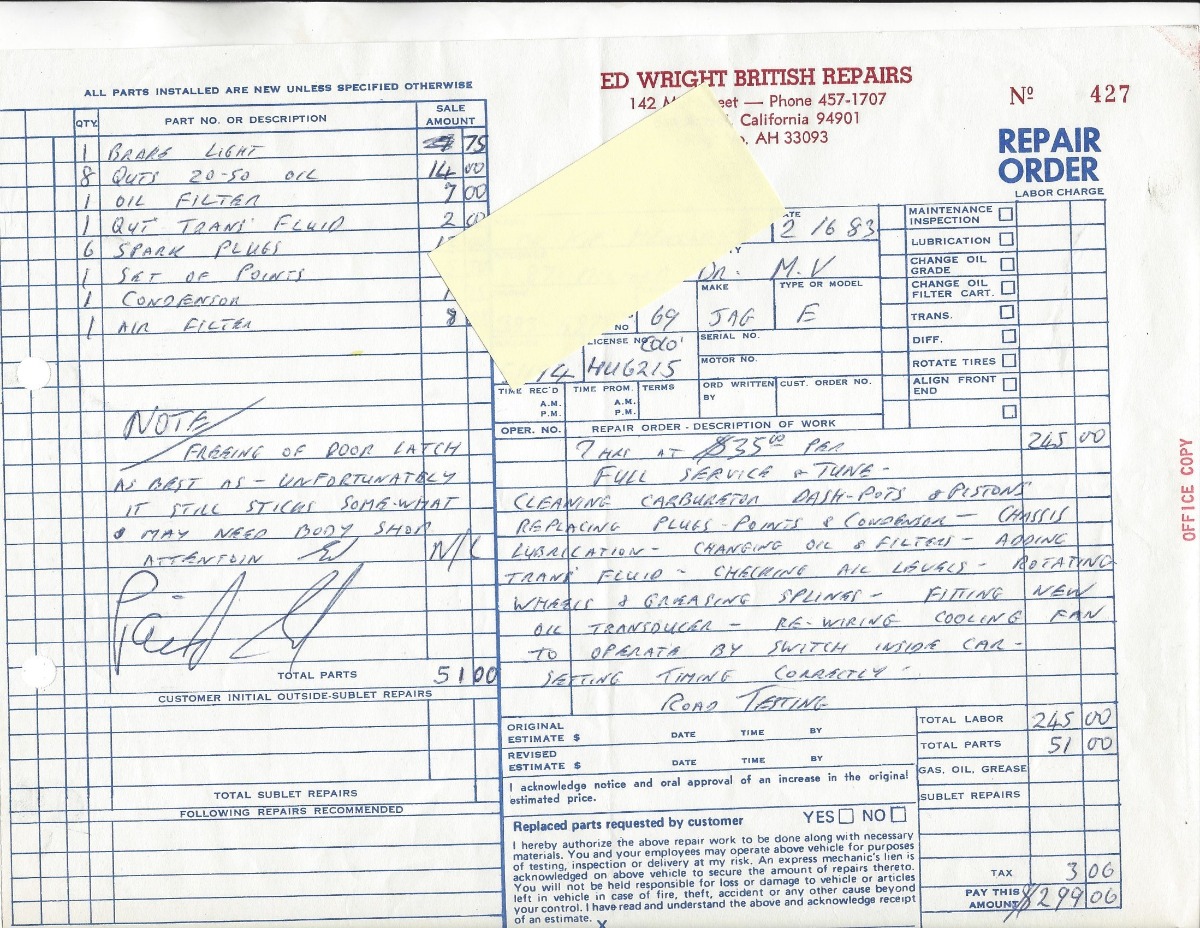 ED WRIGHT BRITISH REPAIRS
142 M eet — Phone 457-1707
, California 94901
. AH 33093
Nº 427
REPAIR
ORDER
LABOR CHARGE
ALL PARTS INSTALLED ARE NEW UNLESS SPECIFIED OTHERWISE
QTY. PART NO. OR DESCRIPTION SALE AMOUNT
1 BRAKE LIGHT 75
8 QUTS 20-50 OIL 14 00
1 OIL FILTER 7 00
1 QUT TRANS' FLUID 2 00
6 SPARK PLUGS
1 SET OF POINTS
1 CONDENSOR
1 AIR FILTER 8
NOTE
FREEING OF DOOR LATCH
AS BEST AS - UNFORTUNATELY
IT STILL STICKS SOME-WHAT
& MAY NEED BODY SHOP
ATTENTOIN N/C
TOTAL PARTS 51 00
CUSTOMER INITIAL OUTSIDE-SUBLET REPAIRS
TOTAL SUBLET REPAIRS
FOLLOWING REPAIRS RECOMMENDED
ATE
2 16 83
DR. M.V
MAKE TYPE OR MODEL
NO 69 JAG E
LICENSE NO. SERIAL NO.
14 HUG215 MOTOR NO.
TIME REC'D TIME PROM. TERMS ORD WRITTEN BY CUST. ORDER NO.
A.M. A.M.
P.M. P.M.
MAINTENANCE INSPECTION
LUBRICATION
CHANGE OIL GRADE
CHANGE OIL FILTER CART.
TRANS.
DIFF.
ROTATE TIRES
ALIGN FRONT END
OPER. NO. REPAIR ORDER - DESCRIPTION OF WORK
7 HRS AT $35 00 PER 245 00
FULL SERVICE & TUNE -
CLEANING CARBURETOR DASH-POTS & PISTONS
REPLACING PLUGS - POINTS & CONDENSOR - CHASSIS
LUBRICATION - CHANGING OIL & FILTERS - ADDING
TRANS' FLUID - CHECKING ALL LEVELS - ROTATING
WHEELS & GREASING SPLINES - FITTING NEW
OIL TRANSDUCER - RE-WIRING COOLING FAN
TO OPERATE BY SWITCH INSIDE CAR -
SETTING TIMING CORRECTLY -
ROAD TESTING
ORIGINAL ESTIMATE $ DATE TIME BY
REVISED ESTIMATE $ DATE TIME BY
I acknowledge notice and oral approval of an increase in the original
estimated price.
Replaced parts requested by customer YES NO
I hereby authorize the above repair work to be done along with necessary
materials. You and your employees may operate above vehicle for purposes
of testing, inspection or delivery at my risk. An express mechanic's lien is
acknowledged on above vehicle to secure the amount of repairs thereto.
You will not be held responsible for loss or damage to vehicle or articles
left in vehicle in case of fire, theft, accident or any other cause beyond
your control. I have read and understand the above and acknowledge receipt
of an estimate. X
TOTAL LABOR 245 00
TOTAL PARTS 51 00
GAS, OIL, GREASE
SUBLET REPAIRS
TAX 3 06
PAY THIS AMOUNT $299 06
OFFICE COPY